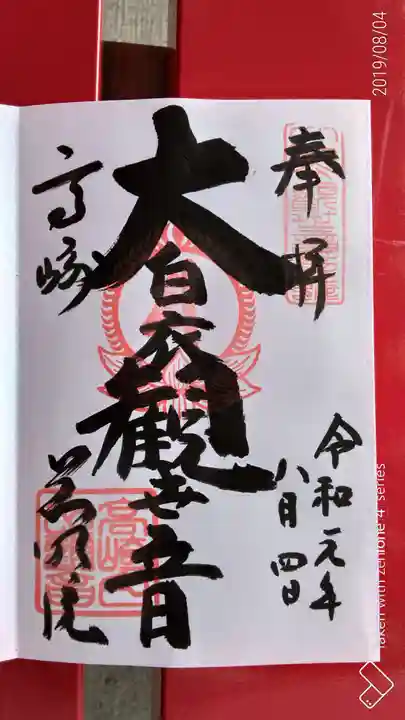 奉拝
令和元年
八月四日
大白衣観世音
高崎
慈眼院
2019/08/04
Taken with zenfone 4 series